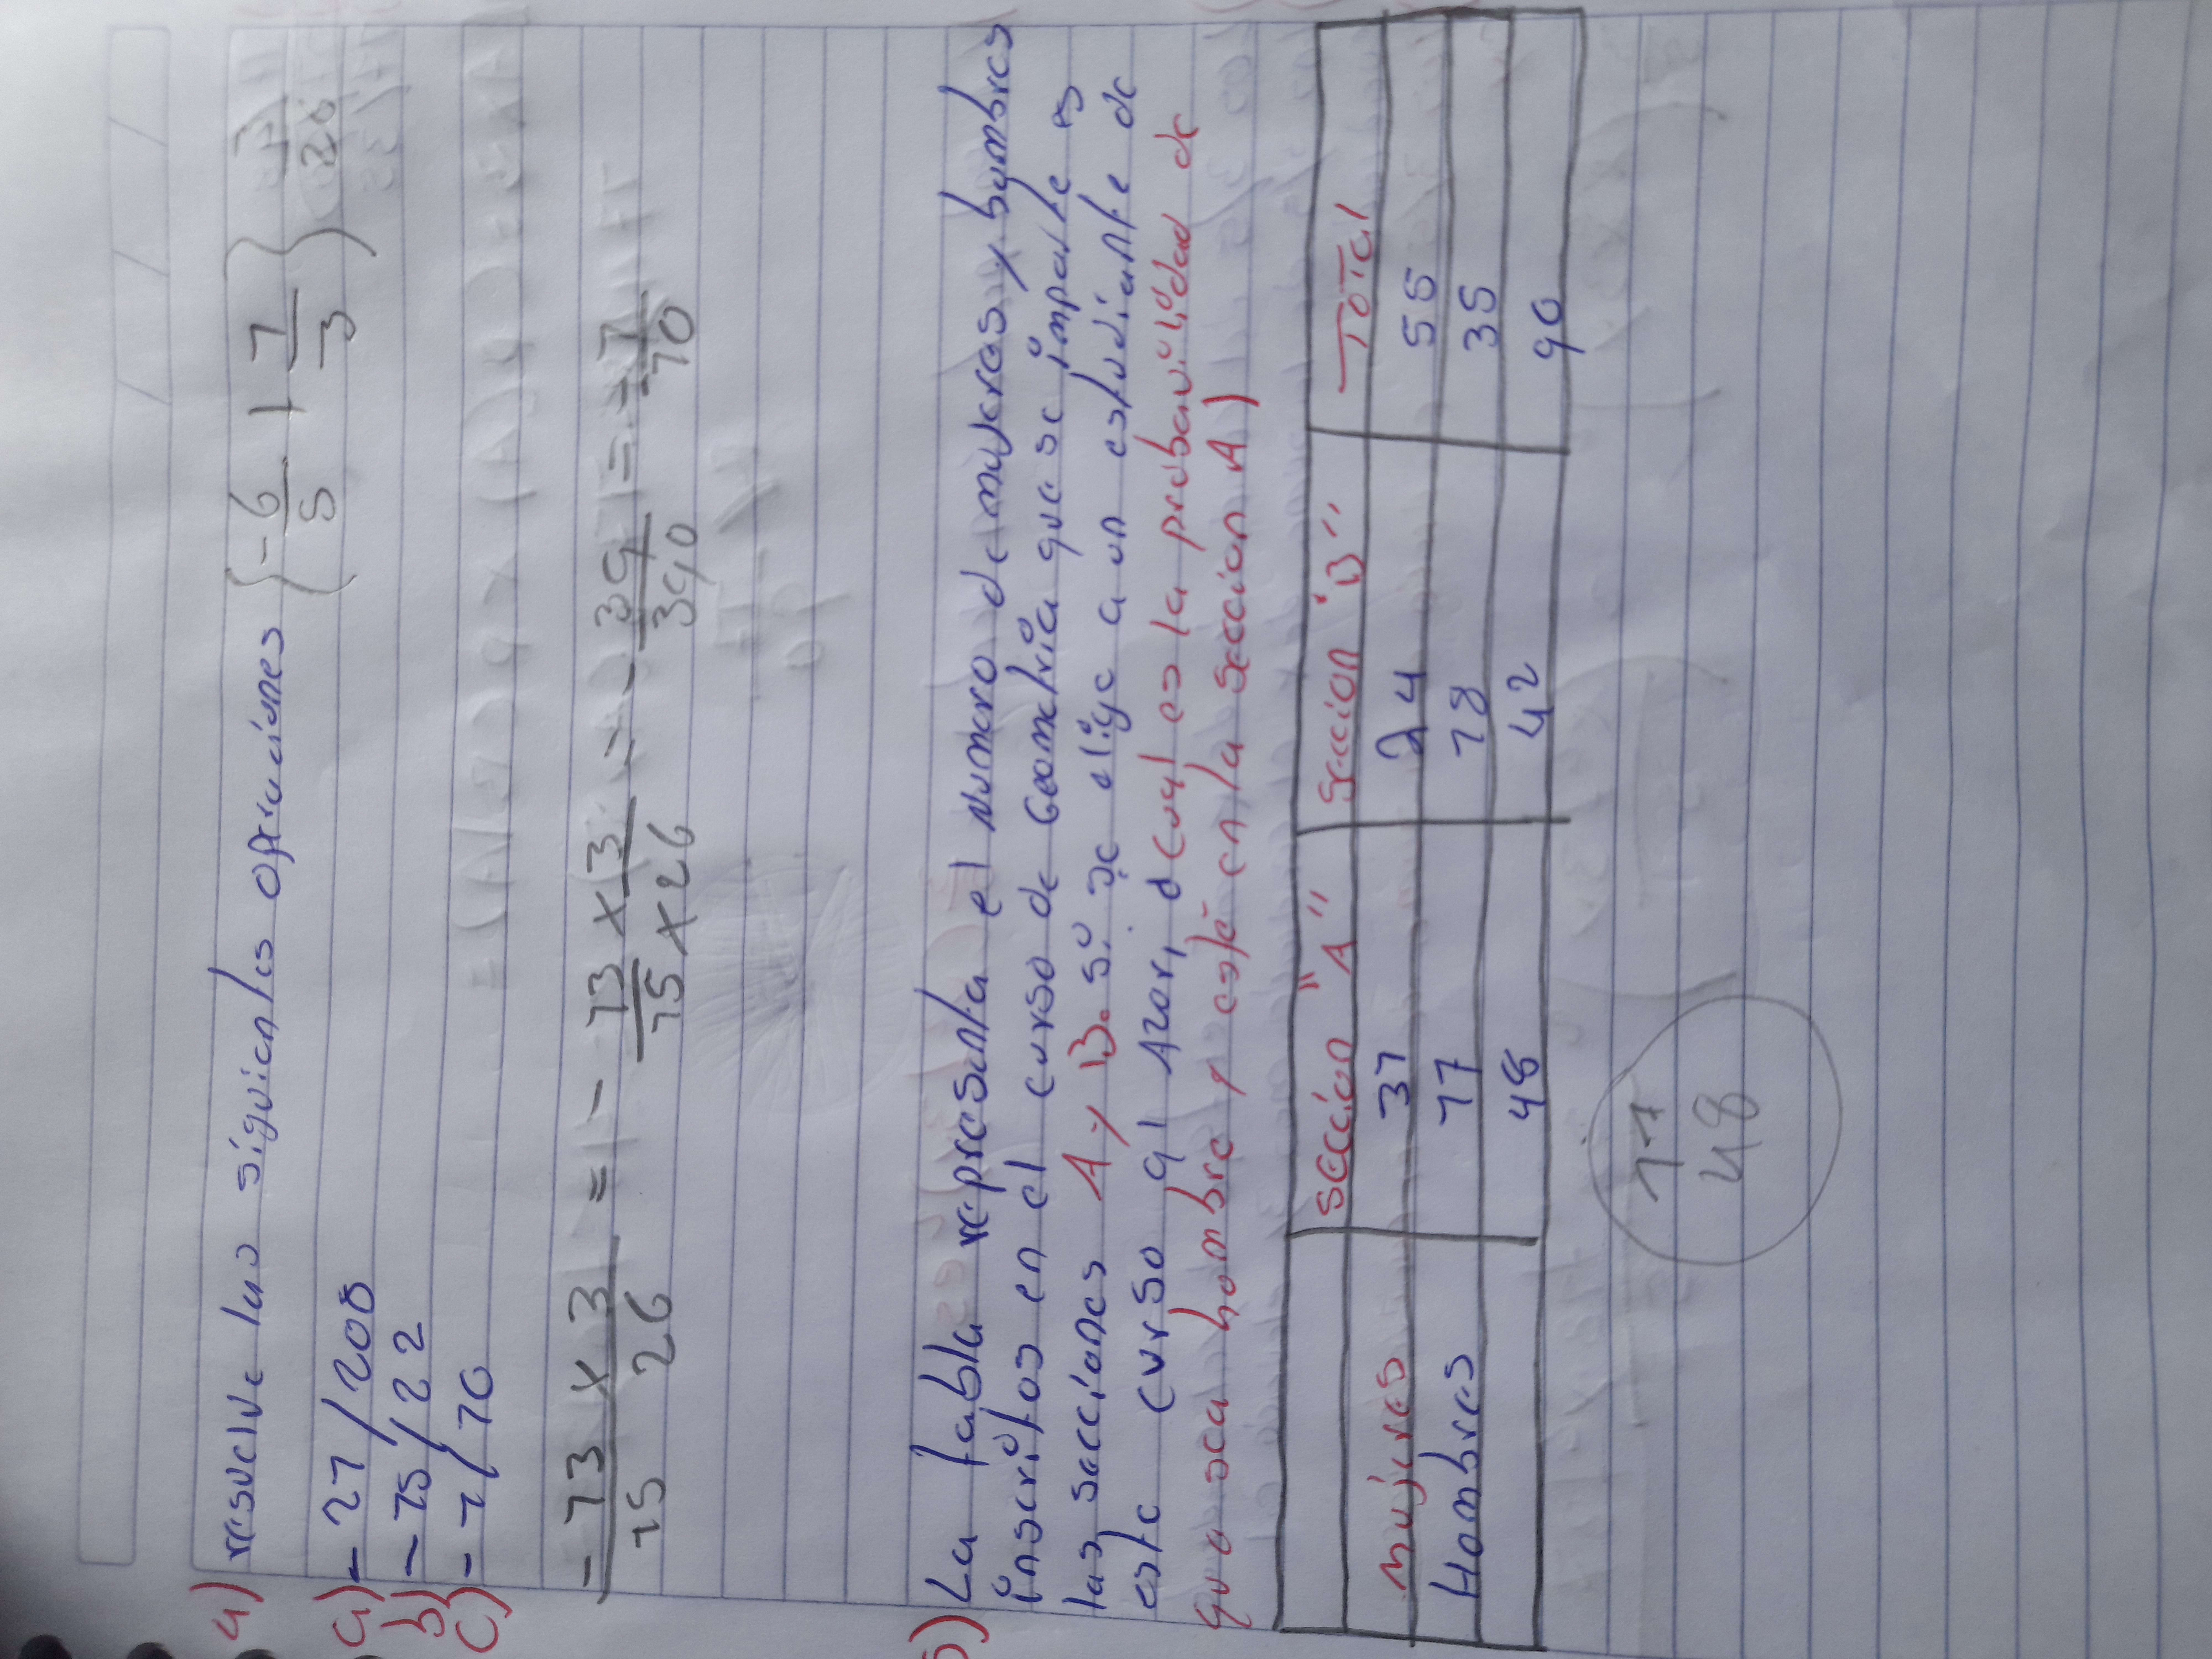 4) resuelve las siguientes operaciones (-6/5 + 1/3) 3/26
a) - 21/200
b) - 15/22
c) - 1/10
- 13 x 3 / 15 26 = - 13 x 3 / 15 x 26 = - 39 / 390 = - 1/10
5) La tabla representa el numero de mujeres y hombres
inscritos en el curso de Geometria que se imparte es
las secciones A y B. si se elige a un estudiante de
este curso al Azar, d cual es la probavilidad de
que sea hombre y esté en la seccion A)
Sección "A" Sección "B" Total
Mujeres 31 24 55
Hombres 17 18 35
48 42 90
17
48